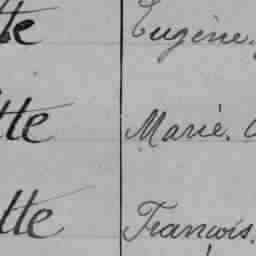 tte Eugène.
tte Marie.
tte François.